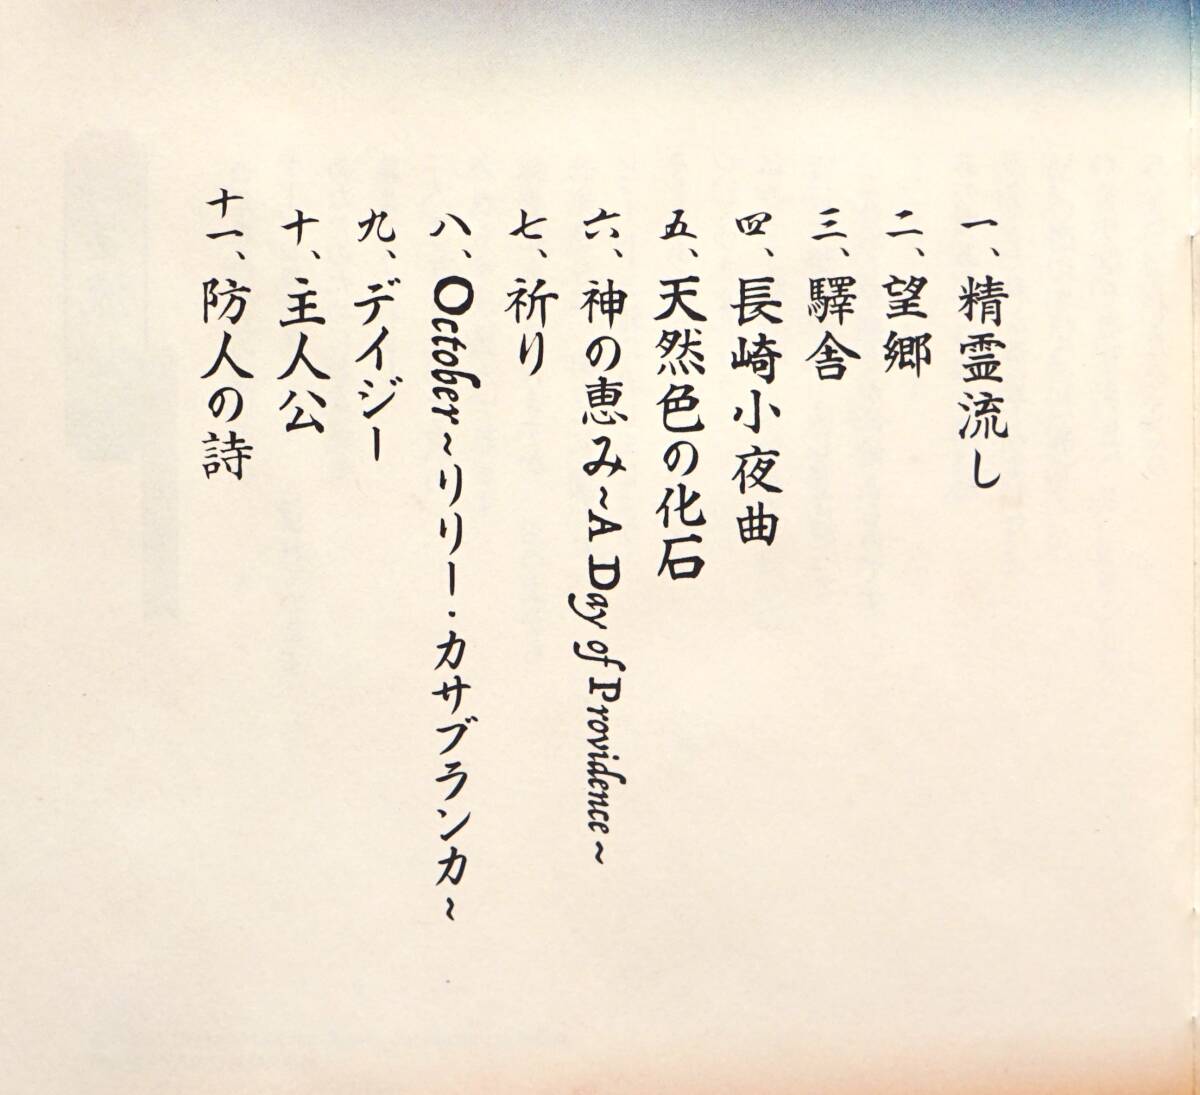 一、精霊流し
二、望郷
三、驛舎
四、長崎小夜曲
五、天然色の化石
六、神の恵み~A Day of Providence~
七、祈り
八、October~リリー・カサブランカ~
九、デイジー
十、主人公
十一、防人の詩